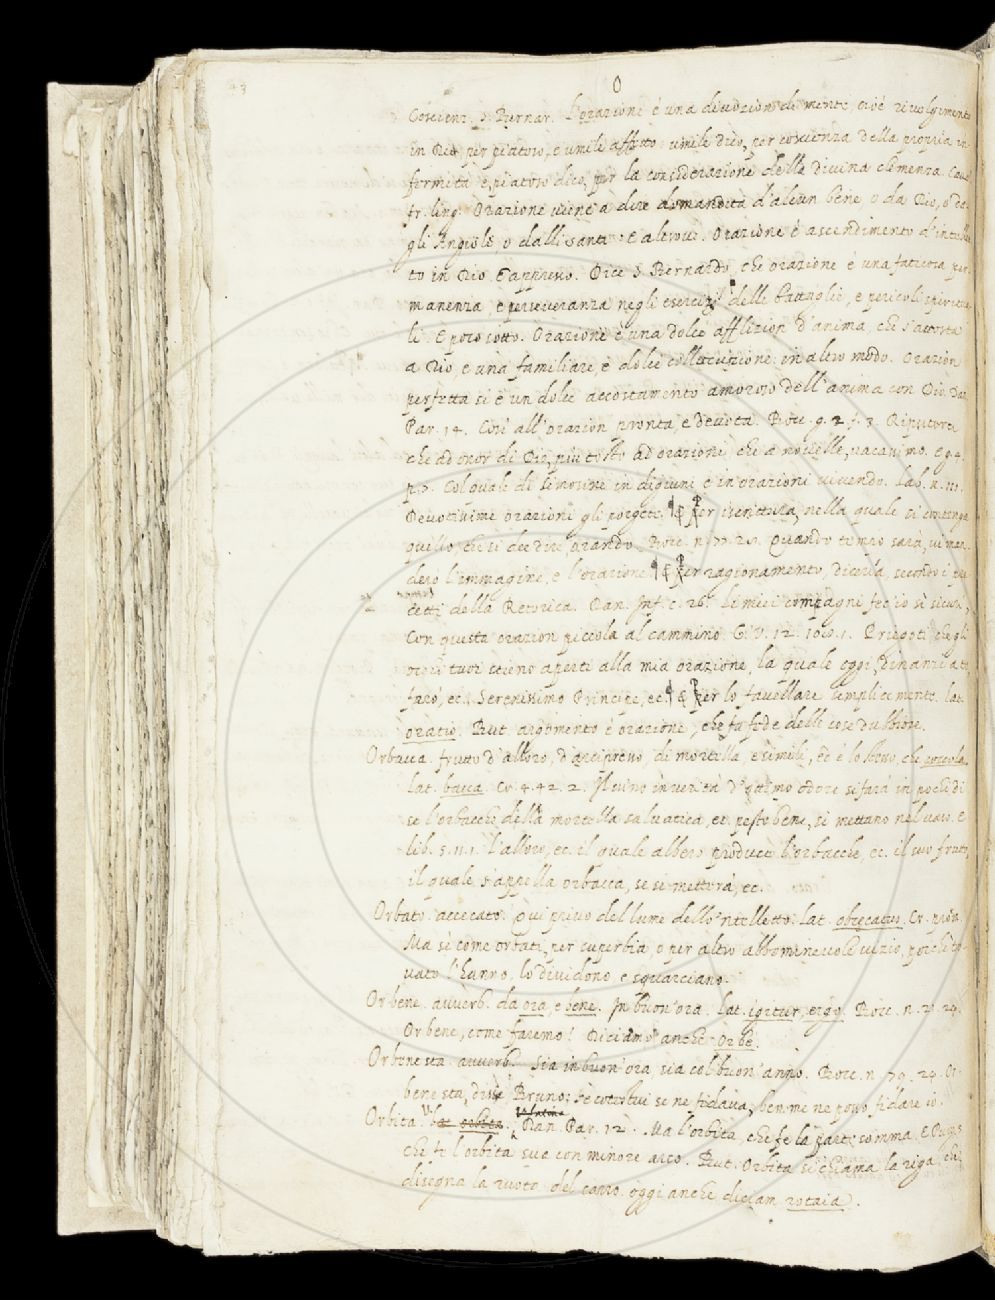 O
Coscienz. S. Bernar. L'orazione è una divozion di mente, cioè rivolgimento
in Dio per piatoso, e umile affetto umile dico, per coscienza della propria in-
fermità e piatoso dico, per la considerazione della divina clemenza. Caval
fr. ling. Orazione viene a dire domandita d'alcun bene, o da Dio, o da
gli Angioli, o dalli santi. E altrove. Orazione è ascendimento d'intellet
to in Dio. E appresso. Dice S. Bernardo, che orazione è una faticosa per
manenza, e perseveranza negli esercizi delle battaglie, e pericoli spiritua
li. E poco sotto. Orazione è una dolce afflizion d'anima, che s'accosta
a Dio, e una familiare, e dolce collocuzione. in altro modo. Orazion
perfetta si è un dolce accostamento amoroso dell'anima con Dio. Dan
Par. 14. Così all'orazion pronta, e devota. Bocc. g. 2. f. 3. Riputerei
che ad onor di Dio, più tosto ad orazioni, che a novelle, vacassimo. E g. 4.
p. 7. Col quale di limosine in digiuni e in orazioni vivendo. Lab. n. 111.
Devotissime orazioni gli porgete. ¶ Per iscrittura, nella quale si contenga
quello, che si dee dire, orando. Bocc. n. 77. 28. Quando tempo sarà, vi man-
derò l'immagine, e l'orazione ¶ Per ragionamento, diceria, secondo i pre
cetti della Retorica. Dan. Inf. c. 26. Li miei compagni fec'io sì acuti,
Con questa orazion piccola al cammino. G. V. 12. 108. 1. Priegoti che gli
orecchi tuoi sieno aperti alla mia orazione, la quale oggi, dinanzi a te,
farò, ec. Serenissimo Principe, ec. ¶ Per lo favellare semplicemente. lat.
oratio. But. argomento è orazione, che fa fede delle cose dubbiose.
Orbacca. frutto d'alloro, d'arcipresso, di mortella, e simili, ed è lo stesso, che coccola.
Lat. bacca. Cr. 4. 42. 2. Il vino in verità d'ottimo odore si farà in pochi dì
se l'orbacche della mortella salvatica, ec. peste bene, si mettano nel vaso. E
lib. 5. n. 1. L'alloro, ec. il quale albero produce l'orbacche, ec. il suo frutto,
il quale s'appella orbacca, se si metterà, ec.
Orbato. accecato. qui privo del lume dello 'ntelletto. Lat. obcecatus. Cr. pros.
Ma sì come orbati, per superbia, o per altro abbominevole vizio, poichè tro
vato l'hanno, lo dividono e squarciano.
Or bene. avverb. da ora, e bene. In buon'ora. Lat. igitur, ergo. Bocc. n. 21. 24.
Or bene, come faremo! Diciamo anche Orbè.
Or bene sta. avverb. Sia in buon'ora, sia col buon'anno. Bocc. n. 79. 24. Or
bene sta, disse Bruno: se costui se ne fidava, ben me ne posso fidare io.
Orbita. Dan. Par. 12. Ma l'orbita, che fè la parte somma. E Purg.
che fe l'orbita sua con minore arco. But. Orbita si chiama la riga, che
disegna la ruota del carro. oggi anche diciam rotaia.